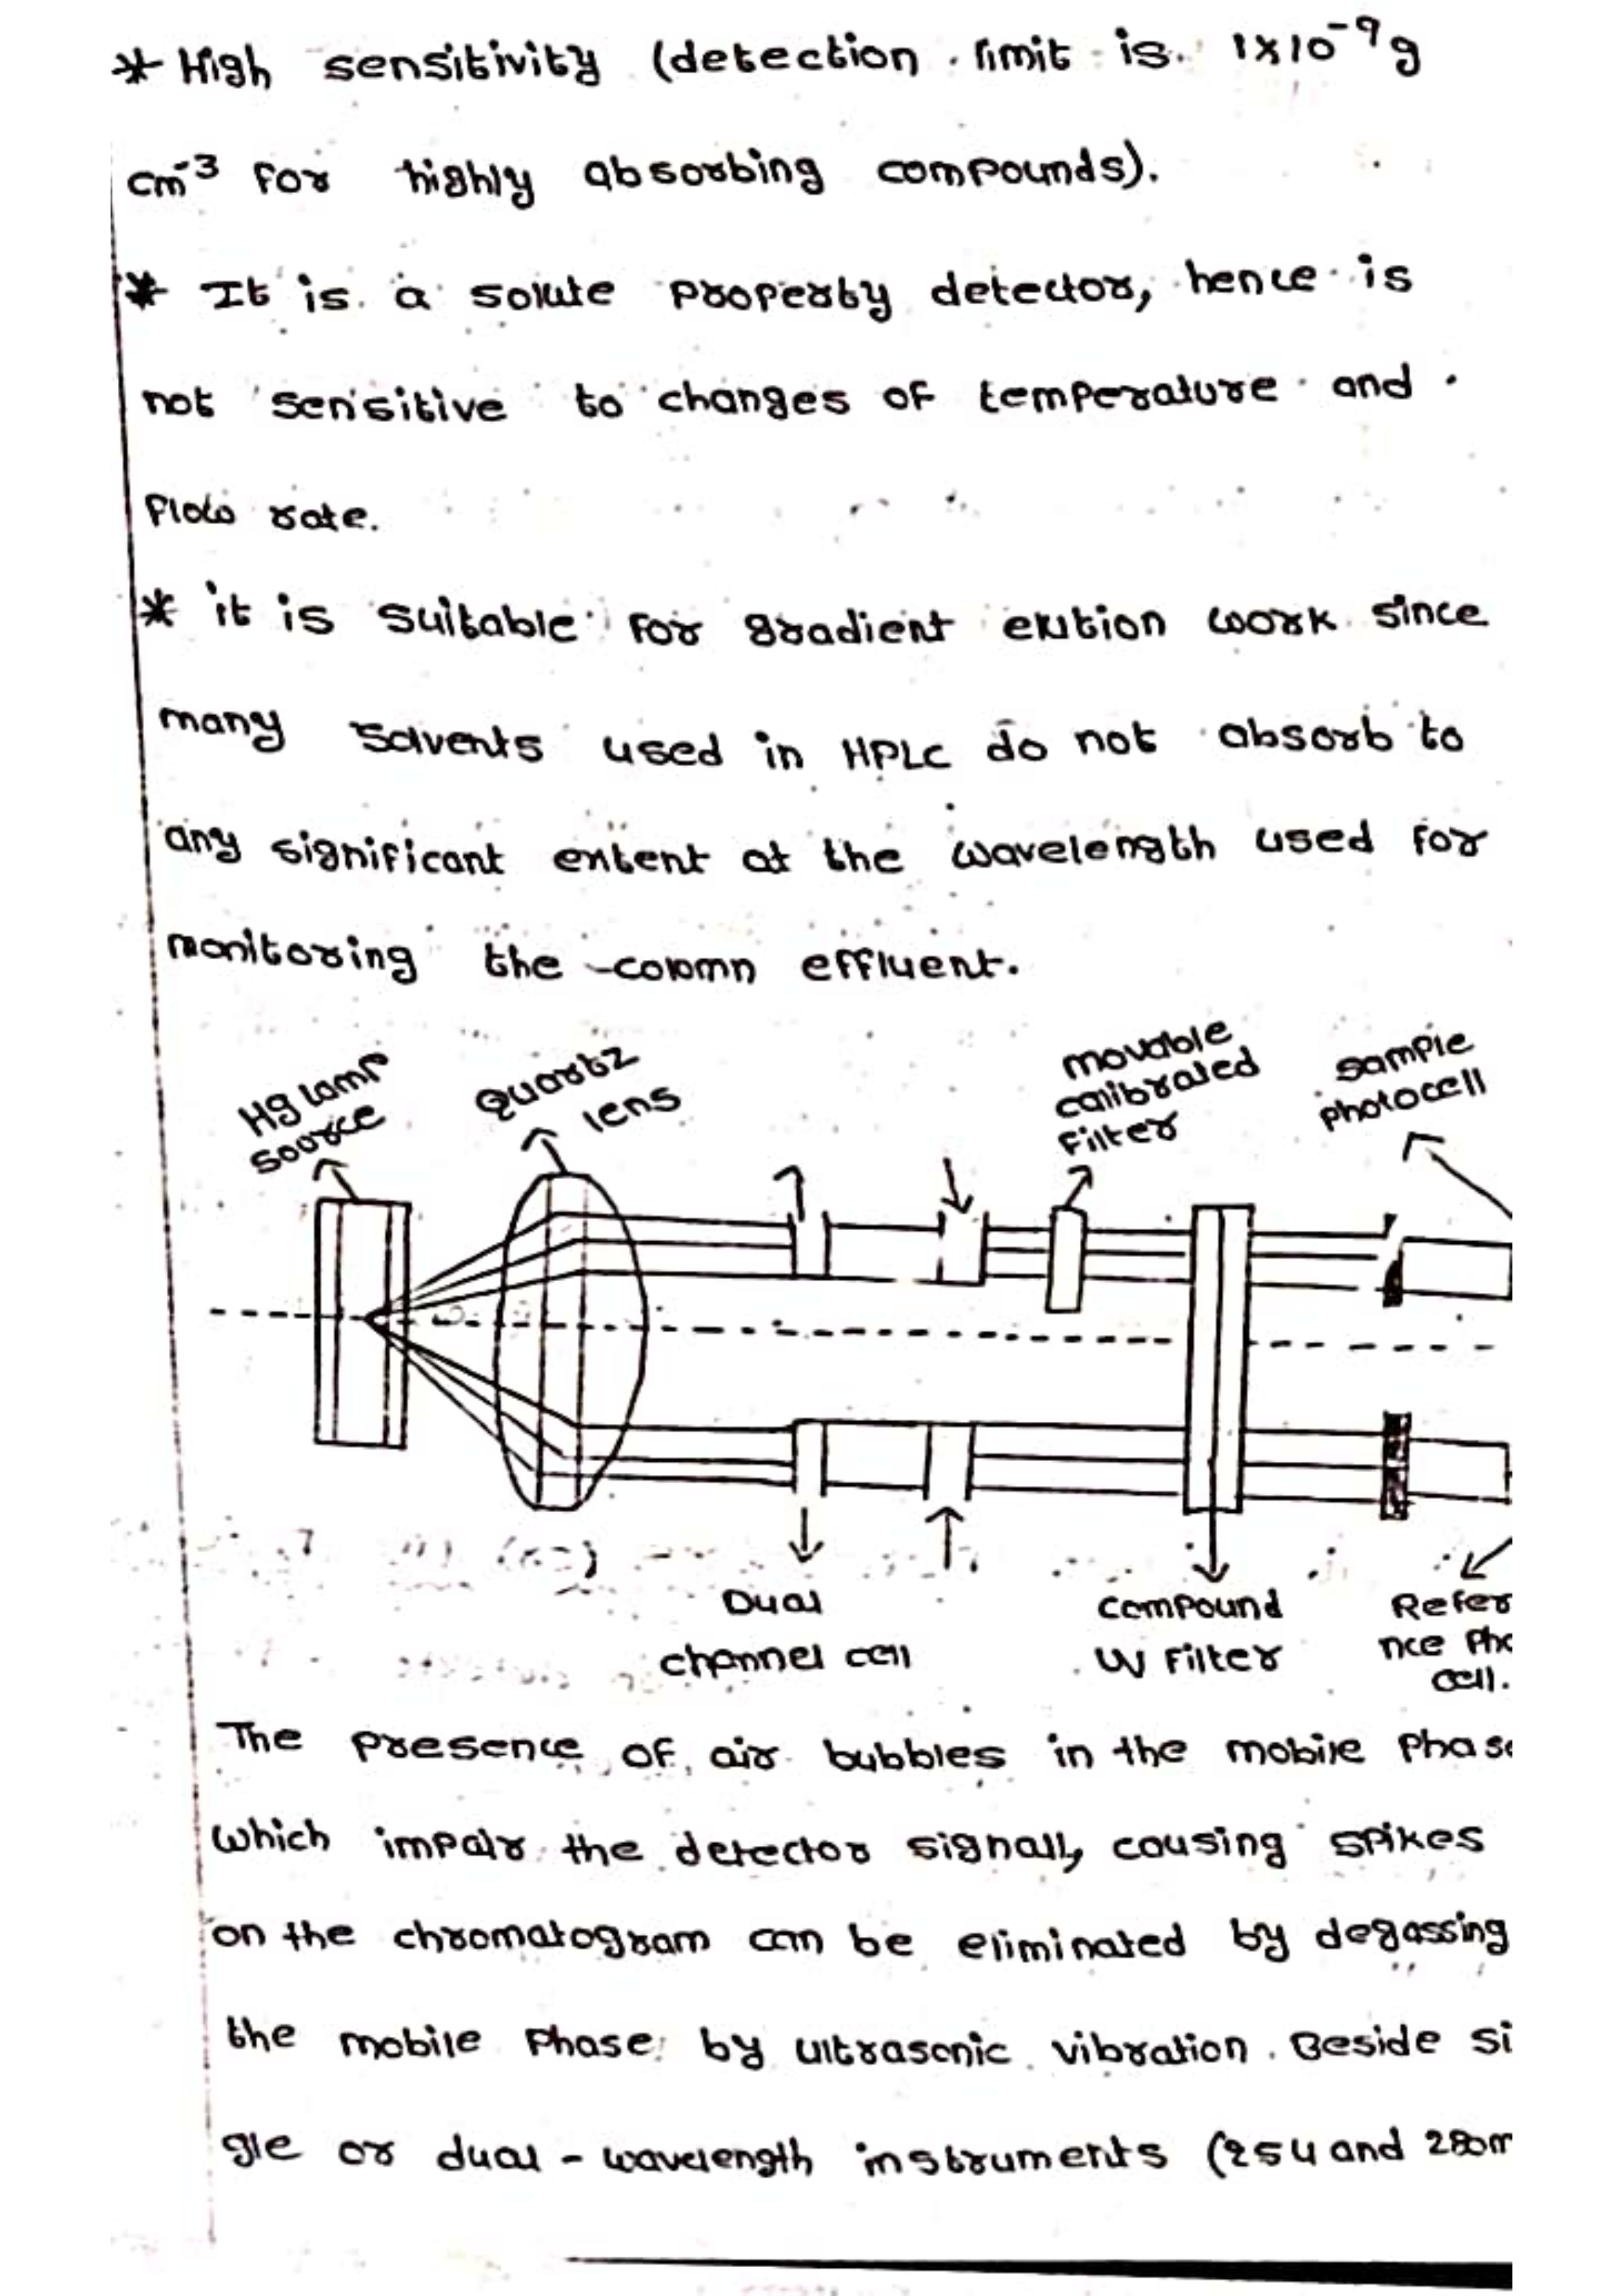 * High sensitivity (detection limit is 1x10⁻⁹g
cm⁻³ for highly absorbing compounds).
* It is a solute property detector, hence is
not sensitive to changes of temperature and
flow rate.
* it is suitable for gradient elution work since
many solvents used in HPLC do not absorb to
any significant extent at the wavelength used for
monitoring the colomn effluent.
Hg lamp
source
Quartz
lens
movable
calibrated
Filter
sample
photocell
Dual
channel cell
compound
UV Filter
Refer
nce Pho
cell.
The presence of air bubbles in the mobile Phase
which impair the detector signall, causing spikes
on the chromatogram can be eliminated by degassing
the mobile Phase by ultrasonic vibration. Beside si
gle or dual - wavelength instruments (254 and 280m